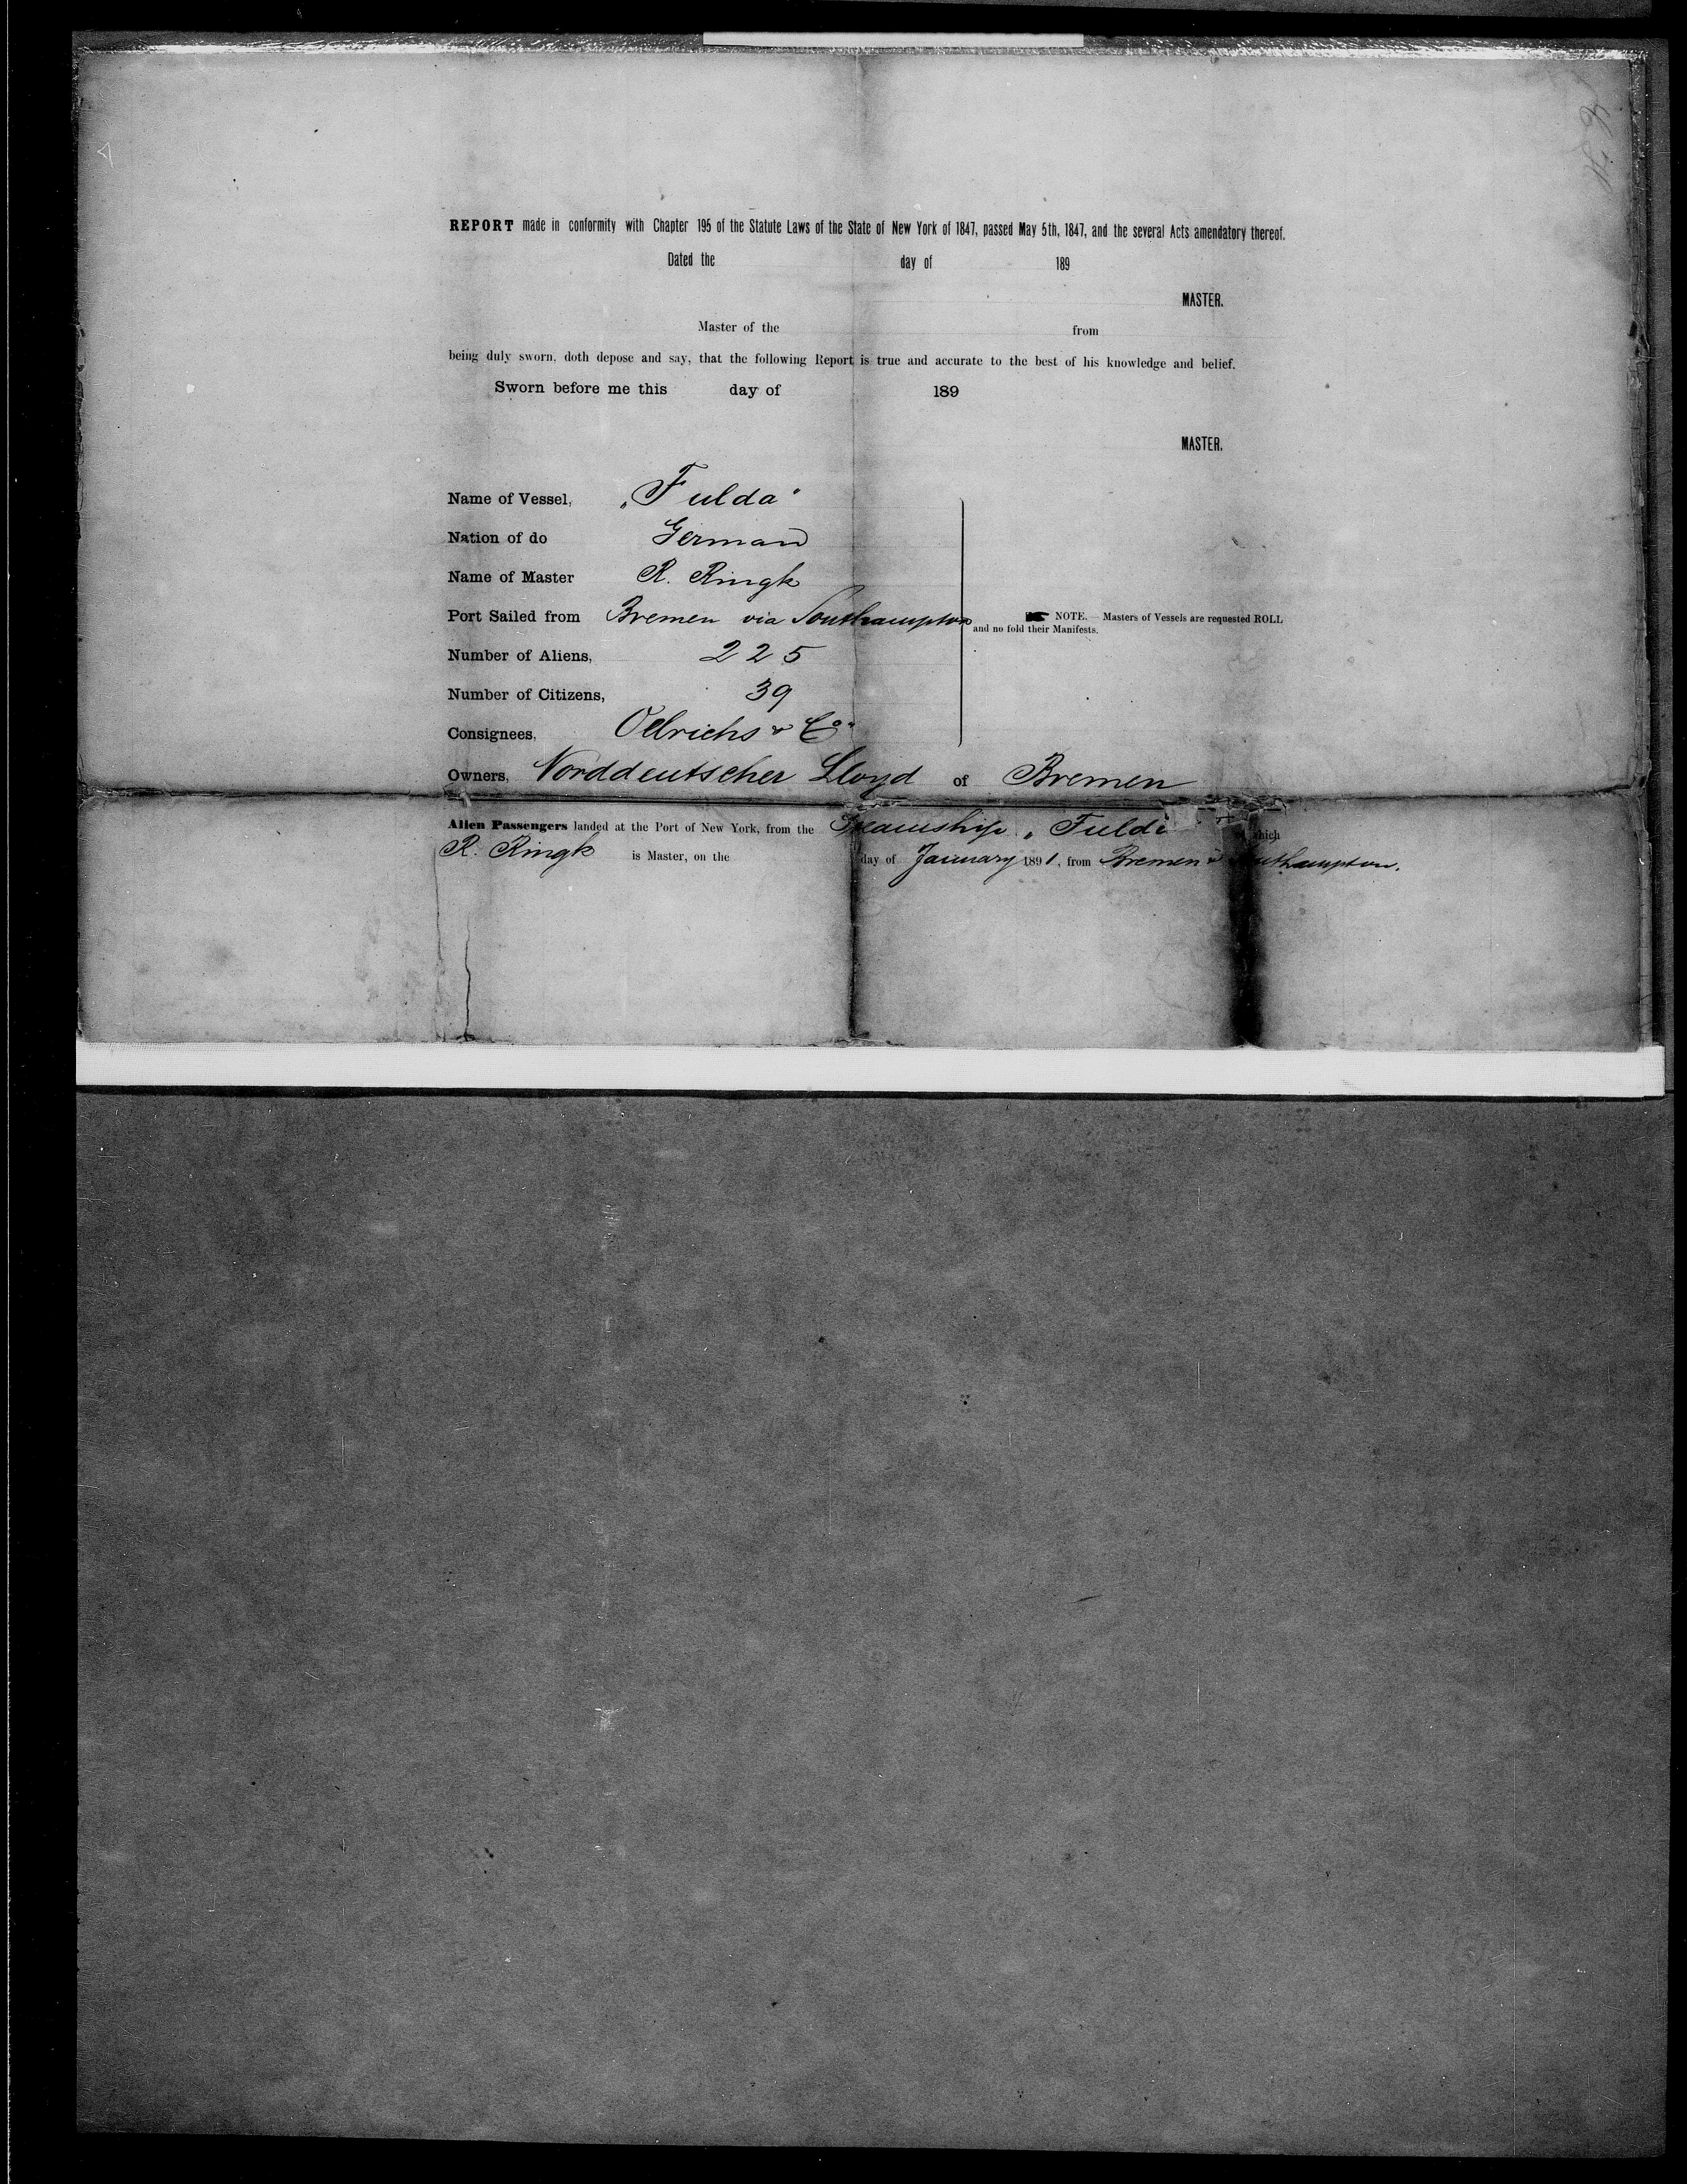 REPORT made in conformity with Chapter 195 of the Statute Laws of the State of New York of 1847, passed May 5th, 1847, and the several Acts amendatory thereof.
Dated the day of 189
MASTER.
Master of the from
being duly sworn, doth depose and say, that the following Report is true and accurate to the best of his knowledge and belief.
Sworn before me this day of 189
MASTER.
Name of Vessel, „Fulda"
Nation of do German
Name of Master R. Ringk
Port Sailed from Bremen via Southampton
NOTE. — Masters of Vessels are requested ROLL
and no fold their Manifests.
Number of Aliens, 225
Number of Citizens, 39
Consignees, Oelrichs & Co.
Owners, Norddeutscher Lloyd of Bremen
Alien Passengers landed at the Port of New York, from the Steamship „Fulda which
R. Ringk is Master, on the day of January 1891, from Bremen Southampton.